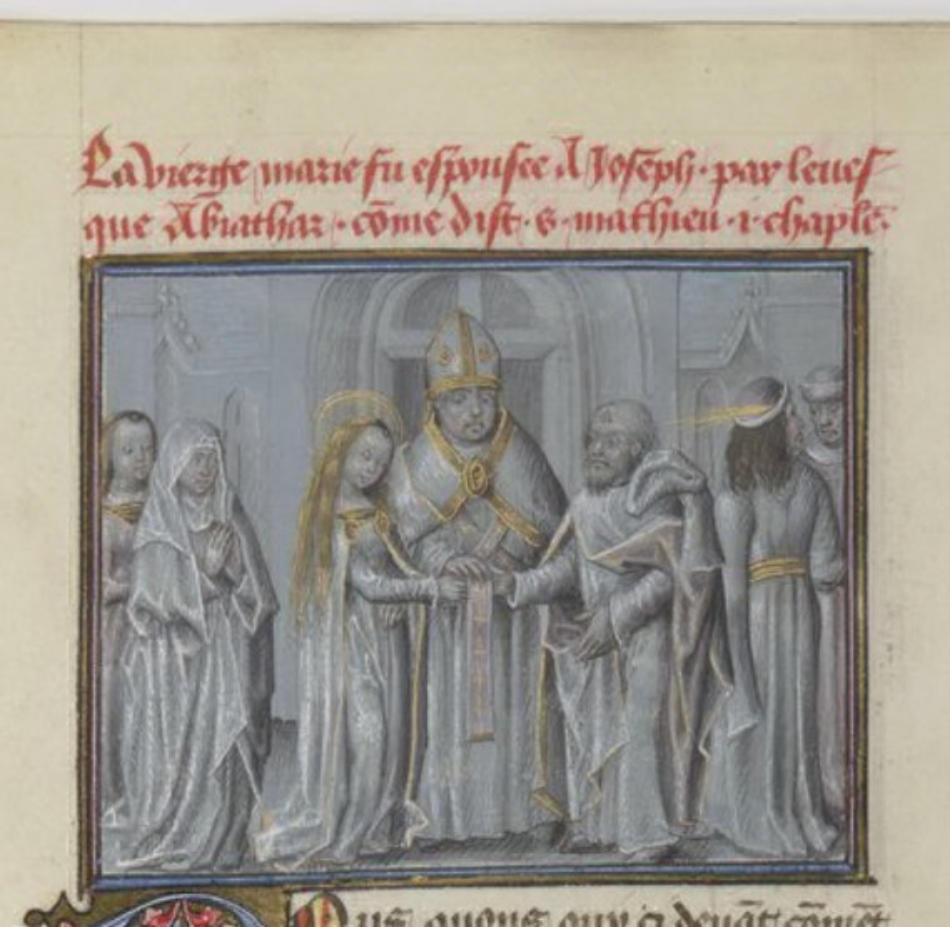 La vierge marie fu espousee A Joseph · par leues
que Abiathar · cõme dist · s · mathieu · i · chaplẽ ·
ous auons ouy ci deuãt cõmẽt